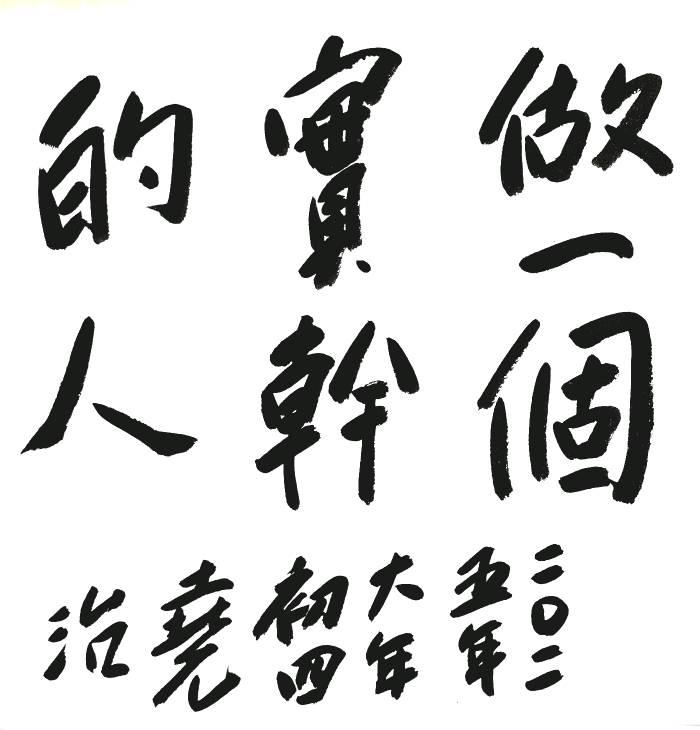 做一個
實幹
的人
二〇二
五年
大年
初四
堯
治